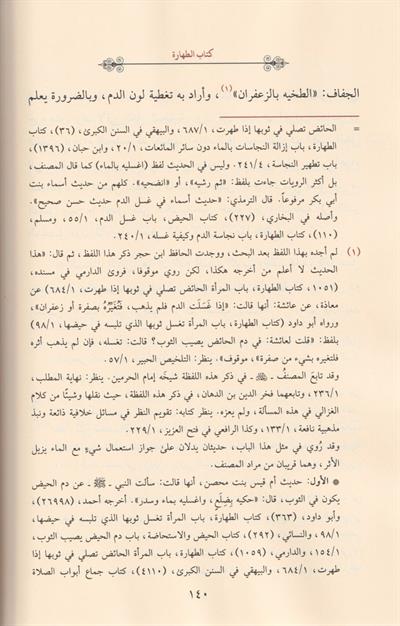 كتاب الطهارة
الجفاف: «الطخيه بالزعفران»(١)، وأراد به تغطية لون الدم، وبالضرورة يعلم
= الحائض تصلي في ثوبها إذا طهرت، ٦٨٧/١، والبيهقي في السنن الكبرى، (٣٦)، كتاب
الطهارة، باب إزالة النجاسات بالماء دون سائر المائعات، ٢٠/١، وابن حبان، (١٣٩٦)،
باب تطهير النجاسة، ٢٤١/٤. وليس في الحديث لفظ (اغسليه بالماء) كما قال المصنف،
بل أكثر الرويات جاءت بلفظ: «ثم رشيه»، أو «انضحيه». كلهم من حديث أسماء بنت
أبي بكر مرفوعاً. قال الترمذي: «حديث أسماء في غسل الدم حديث حسن صحيح».
وأصله في البخاري، (٢٢٧)، كتاب الحيض، باب غسل الدم، ٥٥/١، ومسلم،
(١١٠)، كتاب الطهارة، باب نجاسة الدم وكيفية غسله، ٢٤٠/١.
(١) لم أجده بهذا اللفظ بعد البحث، ووجدت الحافظ ابن حجر ذكر هذا اللفظ، ثم قال: «هذا
الحديث لا أعلم من أخرجه هكذا، لكن روي موقوفا، فروى الدارمي في مسنده،
(١٠٥١)، كتاب الطهارة، باب المرأة الحائض تصلي في ثوبها إذا طهرت، ٦٨٤/١) عن
معاذة، عن عائشة: أنها قالت: «إذا غَسَلَت الدم فلم يذهب، فَتُغَيِّرُهُ بصفرة أو زعفران»،
ورواه أبو داود (كتاب الطهارة، باب المرأة تغسل ثوبها الذي تلبسه في حيضها، ٩٨/١)
بلفظ: «قلت لعائشة: في دم الحائض يصيب الثوب؟ قالت: تغسله، فإن لم يذهب أثره
فلتغيره بشيء من صفرة»، موقوف». ينظر: التلخيص الحبير، ٥٧/١.
وقد تابعَ المصنفُ ـ ـ في ذكر هذه اللفظة شيخَه إمام الحرمين. ينظر: نهاية المطلب،
٢٣٦/١، وتابعهما فخر الدين بن الدهان، في ذكر هذه اللفظة، حيث نقلها وشيئًا من كلام
الغزالي في هذه المسألة، ولم يعزه. ينظر كتابه: تقويم النظر في مسائل خلافية ذائعة ونبذ
مذهبية نافعة، ١٣٣/١، وكذا الرافعي في فتح العزيز، ٢٢٩/١.
وقد رُوي في مثل هذا الباب، حديثان يدلان على جواز استعمال شيءٍ مع الماء يزيل
الأثر، وهما قريبان من مراد المصنف.
الأول: حديث أم قيس بنت محصن، أنها قالت: سألت النبي ـ ﷺ ـ عن دم الحيض
يكون في الثوب، قال: «حكيه بِضِلَعٍ، واغسليه بماء وسدر». أخرجه أحمد، (٢٦٩٩٨)،
وأبو داود، (٣٦٣)، كتاب الطهارة، باب المرأة تغسل ثوبها الذي تلبسه في حيضها،
٩٨/١، والنسائي، (٢٩٢)، كتاب الحيض والاستحاضة، باب دم الحيض يصيب الثوب،
١٥٤/١، والدارمي، (١٠٥٩)، كتاب الطهارة، باب المرأة الحائض تصلي في ثوبها إذا
طهرت، ٦٨٤/١، والبيهقي في السنن الكبرى، (٤١١٠)، كتاب جماع أبواب الصلاة
١٤٠